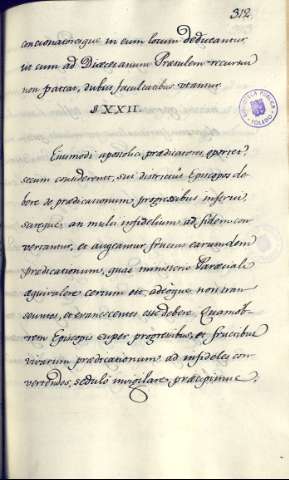 312
concionatoresque in eum locum deducantur,
ut cum ad Diœcesanum Præsulem recursus
non pateat, dubiis facultatibus utantur.
§ XXII.
Eiusmodi apostolici prædicatores oportet
secum considerent, sui districtus Episcopos de
bere de prædicationum progressibus instrui,
scireque an multi infidelium ad fidem con
vertantur, et augeantur fructus earumdem
prædicationum, quas ministerio Parœciali
æquivalere certum est, adeoque non tran
seuntes, et evanescentes esse debere. Quamob
rem Episcopis super progressibus, et fructibus
vivarum prædicationum ad infideles con
vertendos, sedulo invigilare præcipimus.
BIBLIOTECA PUBLICA
TOLEDO